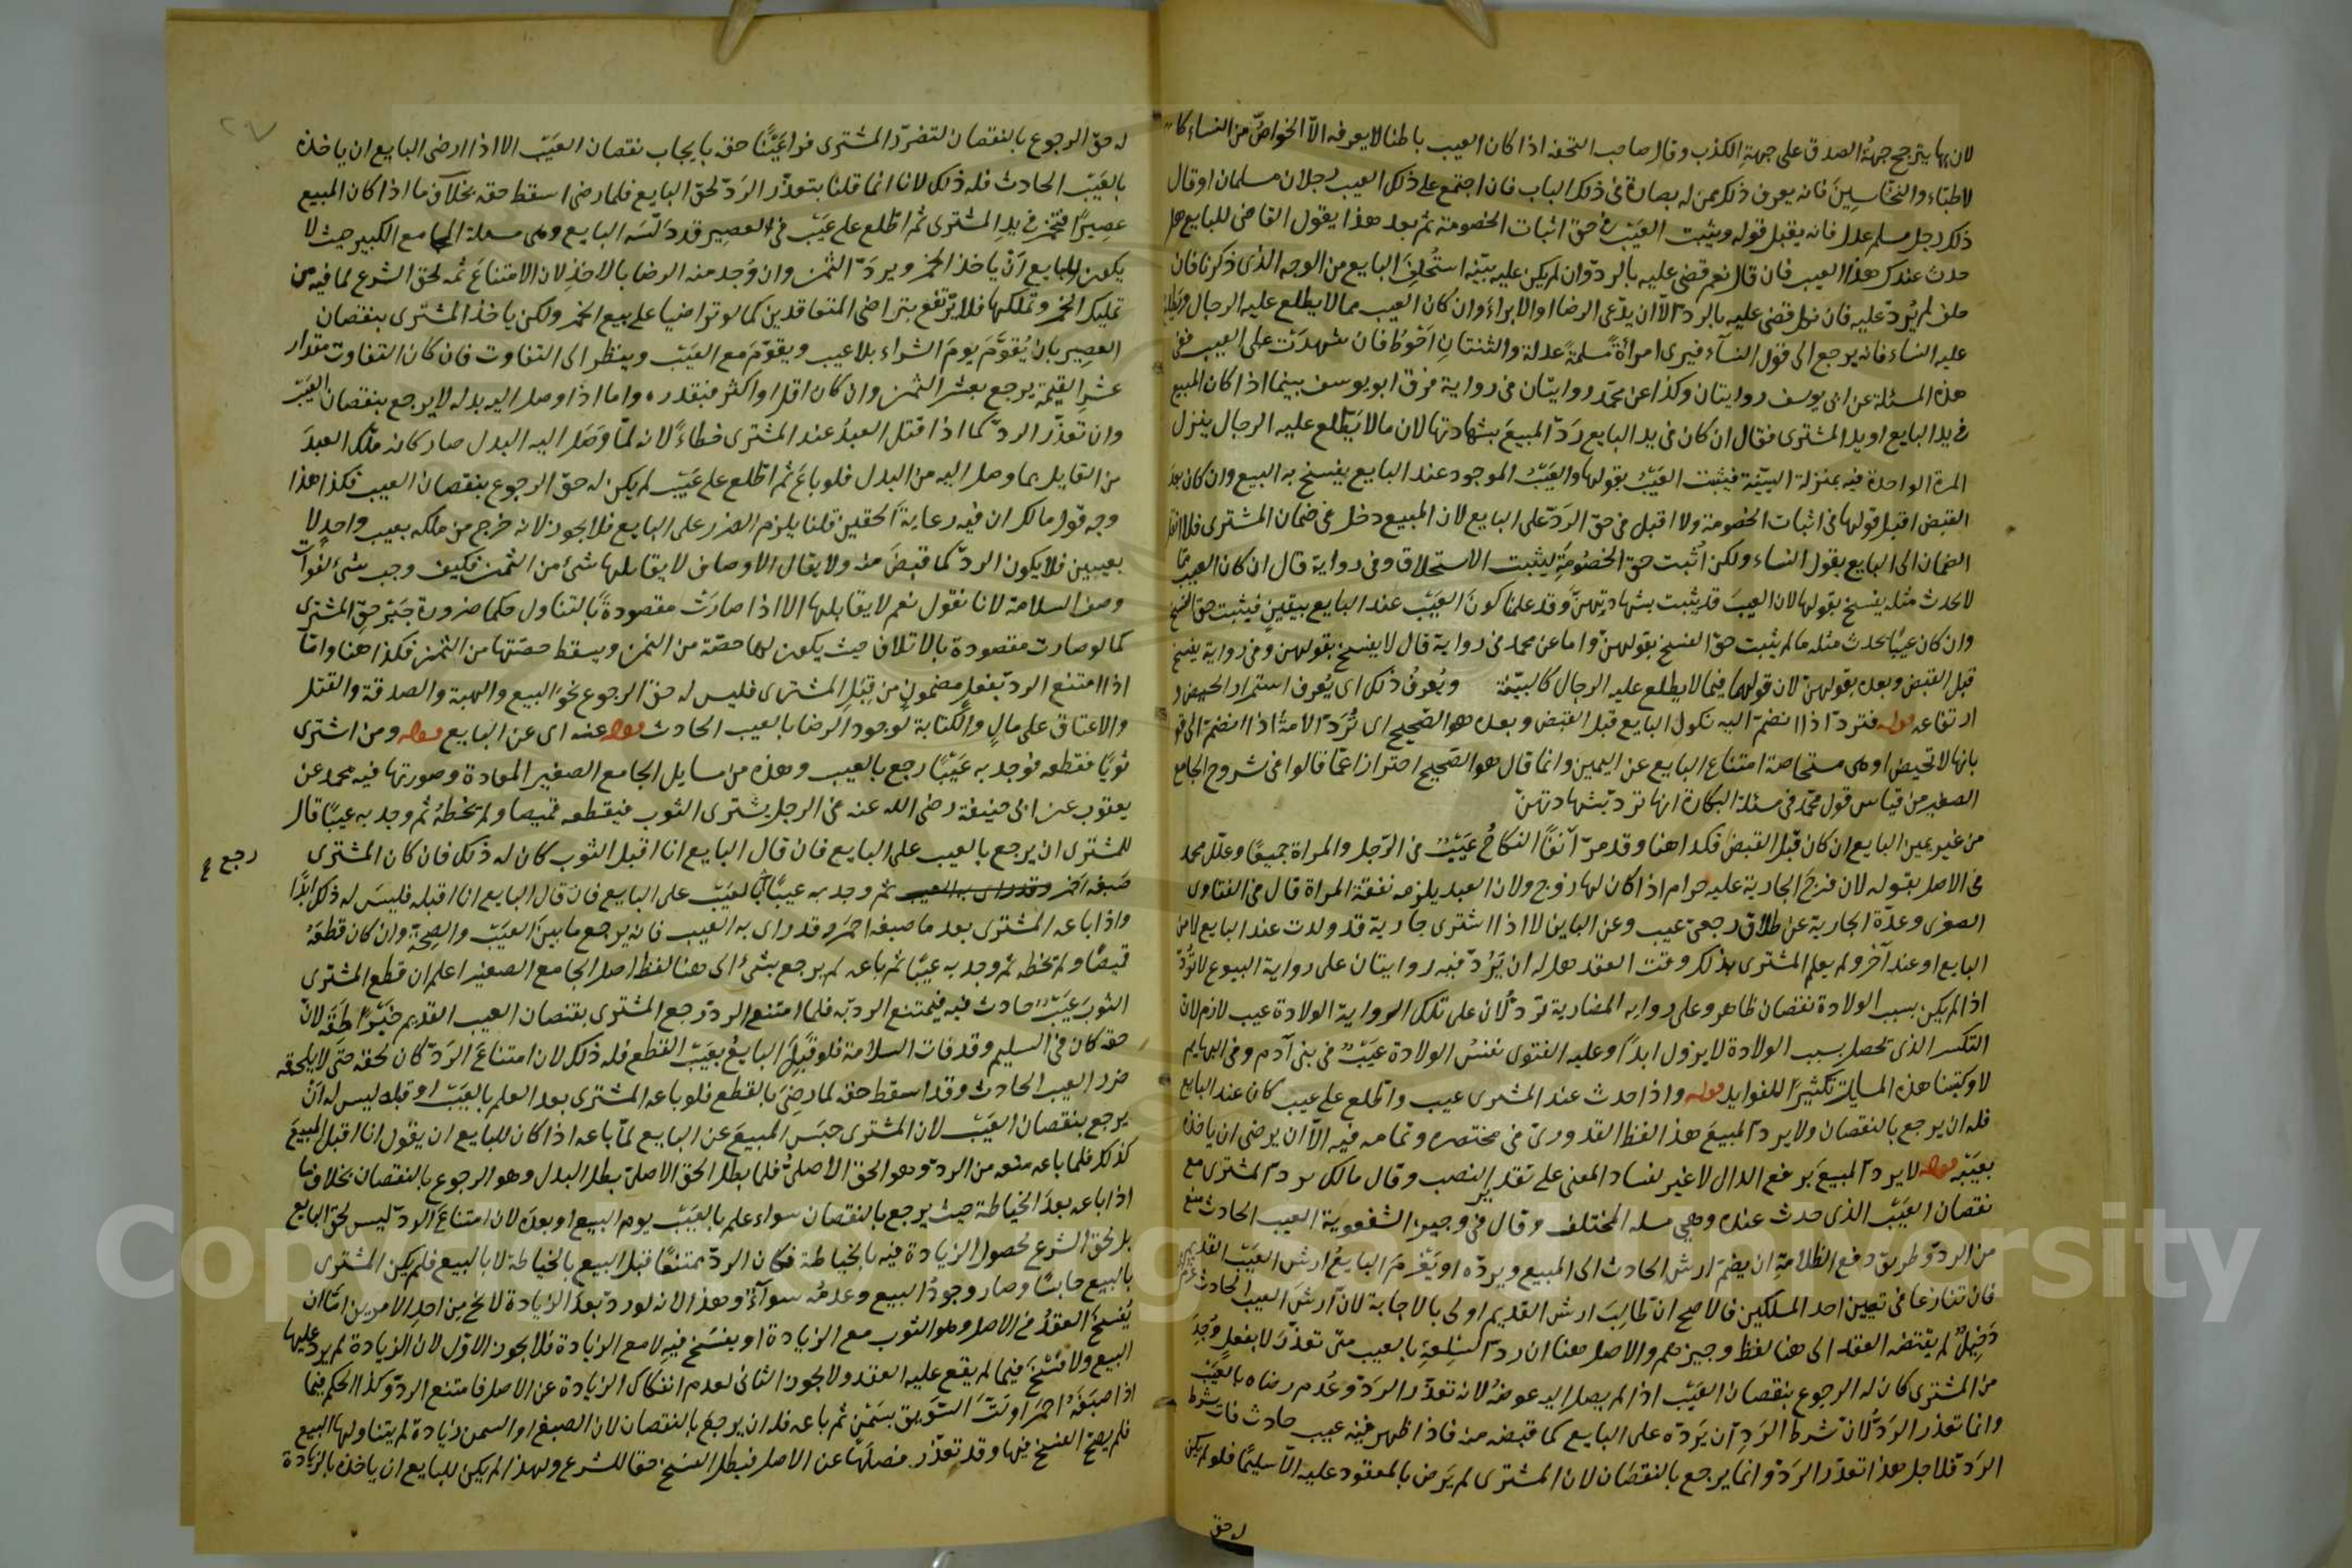 لان بها يترجح جهة الصدق على جهة الكذب وقال صاحب التحفه اذا كان العيب باطنا لا يعرفه الا الخواص من النساء كا
لاطباء والنخاسين فانه يعرف ذلك ممن له بصارة فى ذلك الباب فان اجتمع على ذلك العيب رجلان مسلمان او قال
ذلك رجل مسلم عدل فانه يقبل قوله ويثبت العيب فى حق اثبات الخصومة ثم بعد هذا يقول القاضى للبايع هل
حدث عندك هذا العيب فان قال نعم قضى عليه بالرد وان لم يكن عليه بينه استحلف البايع من الوجه الذى ذكرنا فان
حلف لم يرد عليه فان نكل قضى عليه بالرد الا ان يدعى الرضا او الابراء وان كان العيب مما لا يطلع عليه الرجال ويطلع
عليه النساء فانه يرجع الى قول النساء فيرى امرأة مسلمة عدلة والثنتان احوط فان شهدت على العيب ففى
هذه المسئلة عن ابى يوسف روايتان وكذا عن محمد روايتان فى رواية فرق ابو يوسف بينما اذا كان المبيع
فى يد البايع او يد المشترى فقال ان كان فى يد البايع رد المبيع بشهادتها لان ما لا يطلع عليه الرجال ينزل
المرة الواحدة فيه بمنزلة البينة فيثبت العيب بقولها والعيب الموجود عند البايع يفسخ به البيع وان كان بعد
القبض اقبل قولها فى اثبات الخصومة ولا اقبل فى حق الرد على البايع لان المبيع دخل فى ضمان المشترى فلا انقل
الضمان الى البايع بقول النساء ولكن اثبت حق الخصومة ليثبت الاستحلاف وفى رواية قال ان كان العيب مما
لا يحدث مثله يفسخ بقولها لان العيب قد يثبت بشهادتهن وقد علمنا كون العيب عند البايع بيقين فيثبت حق الفسخ
وان كان عيبا يحدث مثله ما لم يثبت حق الفسخ بقولهن واما عن محمد فى رواية قال لا يفسخ بقولهن وفى رواية يفسخ
قبل القبض وبعده بقولهن لان قولها فيما لا يطلع عليه الرجال كالبينة ويعرف ذلك اى يعرف استمرار الحيض و
ارتفاعه قوله فترد اذا انضم اليه نكول البايع قبل القبض وبعده هو الصحيح اى ترد الامة اذا انضم الى قو
بانها لا تحيض او هى مستحاضة امتناع البايع عن اليمين وانما قال هو الصحيح احترازا عما قالوا فى شروح الجامع
الصغير من قياس قول محمد فى مسئلة البكارة انها ترد بشهادتهن
من غير يمين البايع ان كان قبل القبض فكذا هنا وقد مر آنفا النكاح عيب فى الرجل والمراة جميعا وعلل محمد
فى الاصل بقوله لان فرج الجارية عليه حرام اذا كان لها زوج ولان العبد يلزمه نفقة المراة قال فى الفتاوى
الصغرى وعدة الجارية عن طلاق رجعى عيب وعن الباين لا اذا اشترى جارية قد ولدت عند البايع لا من
البايع او عند آخر ولم يعلم المشترى بذلك وقت العقد هل له ان يرد فيه روايتان على رواية البيوع لا ترد
اذا لم يكن بسبب الولادة نقصان ظاهر وعلى روايه المضاربة ترد لان على تلك الرواية الولادة عيب لازم لان
التكسر الذى يحصل بسبب الولادة لا يزول ابدا وعليه الفتوى نفس الولادة عيب فى بنى آدم وفى البهايم
لا وكتبنا هذه المسايل تكثيرا للفوايد قوله واذا حدث عند المشترى عيب واطلع على عيب كان عند البايع
فله ان يرجع بالنقصان ولا يرد المبيع هذا لفظ القدورى فى مختصره وتمامه فيه الا ان يرضى ان ياخذه
بعيبه قوله لا يرد المبيع برفع الدال لا غير لفساد المعنى على تقدير النصب وقال مالك يرد المشترى مع
نقصان العيب الذى حدث عنده وهى مسله المختلف وقال فى وجيز الشفعوية العيب الحادث منع
من الرد وطريق دفع الظلامة ان يضم ارش الحادث الى المبيع ويرده او يغرم البايع ارش العيب القديم
فان تنازعا فى تعيين احد المسلكين فالاصح ان طالب ارش القديم اولى بالاجابة لان ارش العيب الحادث
دخيل لم يقتضه العقد الى هنا لفظ وجيزهم والاصل هنا ان رد السلعة بالعيب متى تعذر لا بفعل وجد
من المشترى كان له الرجوع بنقصان العيب اذا لم يصل اليه عوضه لانه تعذر الرد وعدم رضاه بالعيب
وانما تعذر الرد لان شرط الرد ان يرده على البايع كما قبضه منه فاذا ظهر فيه عيب حادث فات شرط
الرد فلاجل هذا تعذر الرد وانما يرجع بالنقصان لان المشترى لم يرض بالمعقود عليه الا سليما فلو لم يكن
له حق
له حق الرجوع بالنقصان لتضرر المشترى فراعينا حقه بايجاب نقصان العيب الا اذا ارضى البايع ان ياخذه
بالعيب الحادث فله ذلك لانا انما قلنا بتعذر الرد لحق البايع فلما رضى اسقط حقه بخلاف ما اذا كان المبيع
عصيرا فتخمر فى يد المشترى ثم اطلع على عيب فى العصير قد دلسه البايع وهى مسلة الجامع الكبير حيث لا
يكون للبايع ان ياخذ الخمر ويرد الثمن وان وجد منه الرضا بالاخذ لان الامتناع ثمه لحق الشرع لما فيه من
تمليك الخمر وتملكها فلا يرتفع بتراضى المتعاقدين كما لو تراضيا على بيع الخمر ولكن ياخذ المشترى بنقصان
العصير بان يقوم يوم الشراء بلا عيب ويقوم مع العيب وينظر الى التفاوت فان كان التفاوت مقدار
عشر القيمة يرجع بعشر الثمن وان كان اقل او اكثر فبقدره واما اذا وصل اليه بدله لا يرجع بنقصان العيب
وان تعذر الرد كما اذا قتل العبد عند المشترى خطاء لانه لما وصل اليه البدل صار كانه ملك العبد
من القاتل بما وصل اليه من البدل فلو باع ثم اطلع على عيب لم يكن له حق الرجوع بنقصان العيب فكذا هذا
وجه قول مالك ان فيه رعاية الحقين قلنا يلزم الضرر على البايع فلا يجوز لانه خرج من ملكه بعيب واحد لا
بعيبين فلا يكون الرد كما قبض منه ولا يقال الاوصاف لا يقابلها شئ من الثمن فكيف وجب شئ لفوات
وصف السلامة لانا نقول نعم لا يقابلها الا اذا صارت مقصودة بالتناول حكما ضرورة جبر حق المشترى
كما لو صارت مقصودة بالاتلاف حيث يكون لها حصة من الثمن ويسقط حصتها من الثمن فكذا هنا واما
اذا امتنع الرد بفعل مضمون من قبل المشترى فليس له حق الرجوع نحو البيع والهبة والصدقة والقتل
والاعتاق على مال والكتابة لوجود الرضا بالعيب الحادث قوله عنه اى عن البايع قوله ومن اشترى
ثوبا فقطعه فوجد به عيبا رجع بالعيب وهذه من مسايل الجامع الصغير المعادة وصورتها فيه محمد عن
يعقوب عن ابى حنيفة رضى الله عنه فى الرجل يشترى الثوب فيقطعه قميصا ولم يخطه ثم وجد به عيبا قال
للمشترى ان يرجع بالعيب على البايع فان قال البايع انا اقبل الثوب كان له ذلك فان كان المشترى
صبغه احمر وقد راى به العيب ثم وجد به عيبا بالعيب على البايع فان قال البايع انا اقبله فليس له ذلك ابدا
رجع
واذا باعه المشترى بعد ما صبغه احمر وقد راى به العيب فانه يرجع ما بين العيب والصحة وان كان قطعه
قميصا ولم يخطه ثم وجد به عيبا ثم باعه لم يرجع بشئ الى هنا لفظ اصل الجامع الصغير اعلم ان قطع المشترى
الثوب عيب حادث فيه فيمتنع الرد به فلما امتنع الرد رجع المشترى بنقصان العيب القديم جبرا لحقه لان
حقه كان فى السليم وقد فات السلامة فلو قبل البايع بعيب القطع فله ذلك لان امتناع الرد كان لحقه حتى لا يلحقه
ضرر العيب الحادث وقد اسقط حقه لما رضى بالقطع فلو باعه المشترى بعد العلم بالعيب او قبله ليس له ان
يرجع بنقصان العيب لان المشترى حبس المبيع عن البايع لما باعه اذا كان للبايع ان يقول انا اقبل المبيع
كذلك فلما باعه منعه من الرد وهو الحق الاصلى فلما بطل الحق الاصلى بطل البدل وهو الرجوع بالنقصان بخلاف ما
اذا باعه بعد الخياطة حيث يرجع بالنقصان سواء علم بالعيب يوم البيع او بعده لان امتناع الرد ليس لحق البايع
بل لحق الشرع لحصول الزيادة فيه بالخياطة فكان الرد ممتنعا قبل البيع بالخياطة لا بالبيع فلم يكن المشترى
بالبيع حابسا وصار وجود البيع وعدمه سواء وهذا لانه لو رد بعد الزيادة لا يخ من احد الامرين اما ان
يفسخ العقد فى الاصل وهو الثوب مع الزيادة او يفسخ فيه لا مع الزيادة فلا يجوز الاول لان الزيادة لم يرد عليها
البيع ولا فسخ فيما لم يقع عليه العقد ولا يجوز الثانى لعدم انفكاك الزيادة عن الاصل فامتنع الرد وكذا الحكم فيما
اذا صبغه احمر او لت السويق بسمن ثم باعه فله ان يرجع بالنقصان لان الصبغ او السمن زيادة لم يتناولها البيع
فلم يصح الفسخ فيها وقد تعذر فصلها عن الاصل فبطل الفسخ حقا للشرع ولهذا لم يكن للبايع ان ياخذه بالزيادة
Copyright © King Saud University